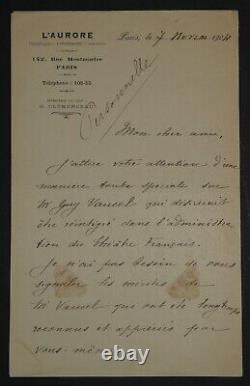 L'AURORE
142, Rue Montmartre
PARIS
Téléphone : 102-55
G. CLEMENCEAU
Paris, le 7 Novem 1904
Personnelle
Mon cher ami,
J'attire votre attention d'une
manière toute spéciale sur
Mr Guy qui désirerait
être réintégré dans l'administra
tion du Théâtre Français.
Je n'ai pas besoin de vous
signaler les mérites de
Mr qui ont été longtemps
reconnus et appréciés par
vous-même